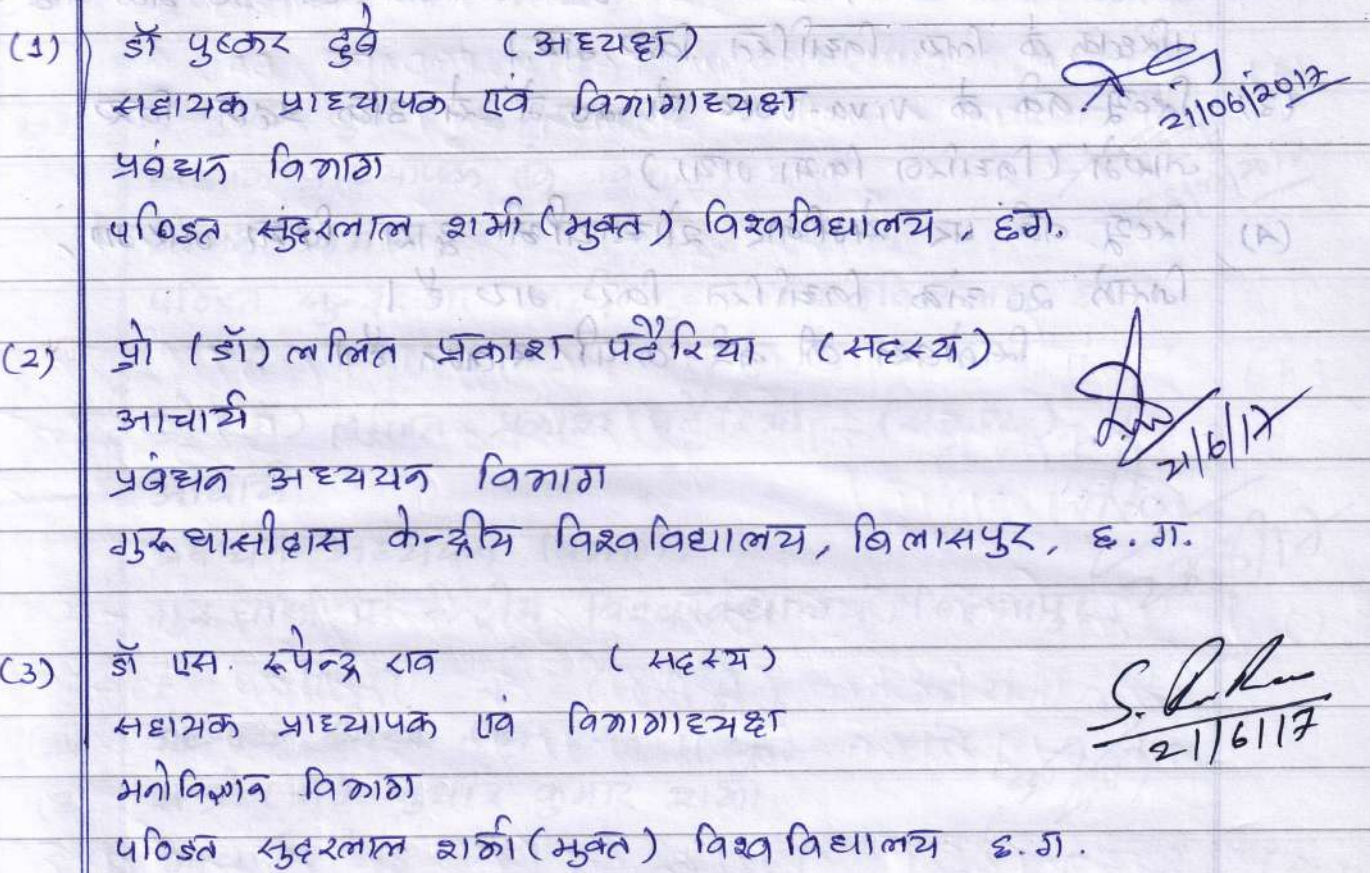 (1) डॉ पुष्कर दुबे (अध्यक्ष)
सहायक प्राध्यापक एवं विभागाध्यक्ष
21/06/2017
प्रबंधन विभाग
पण्डित सुंदरलाल शर्मा (मुक्त) विश्वविद्यालय, छग.
(2) प्रो (डॉ) ललित प्रकाश पटैरिया (सदस्य)
आचार्य
21/6/17
प्रबंधन अध्ययन विभाग
गुरू घासीदास केन्द्रीय विश्वविद्यालय, बिलासपुर, छ. ग.
(3) डॉ एस. रूपेन्द्र राव (सदस्य)
सहायक प्राध्यापक एवं विभागाध्यक्ष
21/6/17
मनोविज्ञान विभाग
पण्डित सुदरलाल शर्मा (मुक्त) विश्वविद्यालय छ. ग.